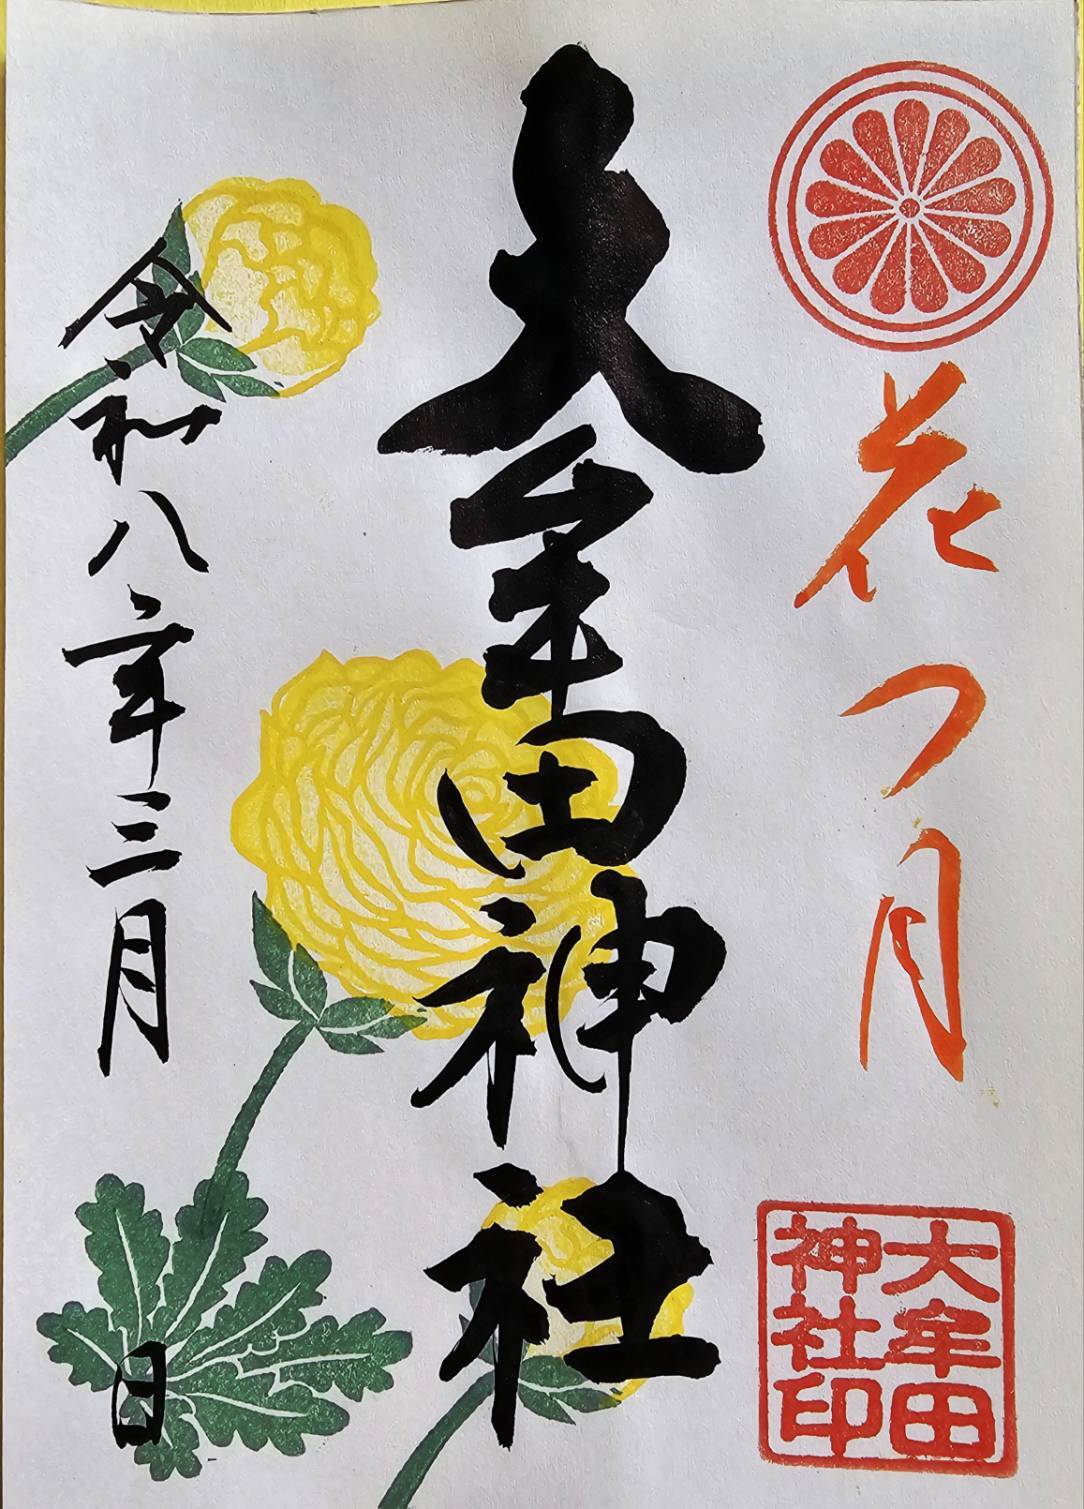 花つ月
大牟田
神社印
大牟田神社
令和八年三月 日